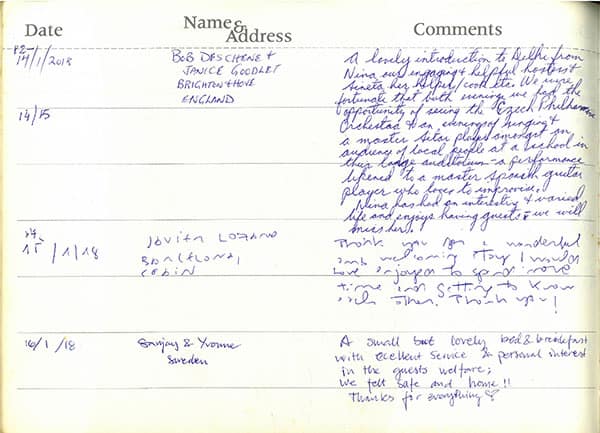 Date
Name & Address
Comments
12-
14/1/2018
BOB DESCHENE &
JANICE GOODLET
BRIGHTON & HOVE
ENGLAND
14/15
A lovely introduction to Delhi from
Nina our engaging & helpful hostess &
her helper/cook etc. We were
fortunate that both evenings we had the
opportunity of seeing the Czech Philharmonic
Orchestra & an evening of singing &
a master sitar player amongst an
audience of local people at a school in
their large auditorium - a performance
likened to a master spanish guitar
player who loves to improvise.
Nina has had an interesting & varied
life and enjoys having guests & we will
miss her.
15/1/18
Jovita Lozano
Barcelona,
Thank you for a wonderful
and welcoming stay I would
have enjoyed to spend more
time and getting to know
each other. Thank you!
16/1/18
Sanjay & Yvonne
Sweden
A small but lovely bed & breakfast
with excellent service & personal interest
in the guests welfare;
We felt safe and home!!
Thanks for everything ♡